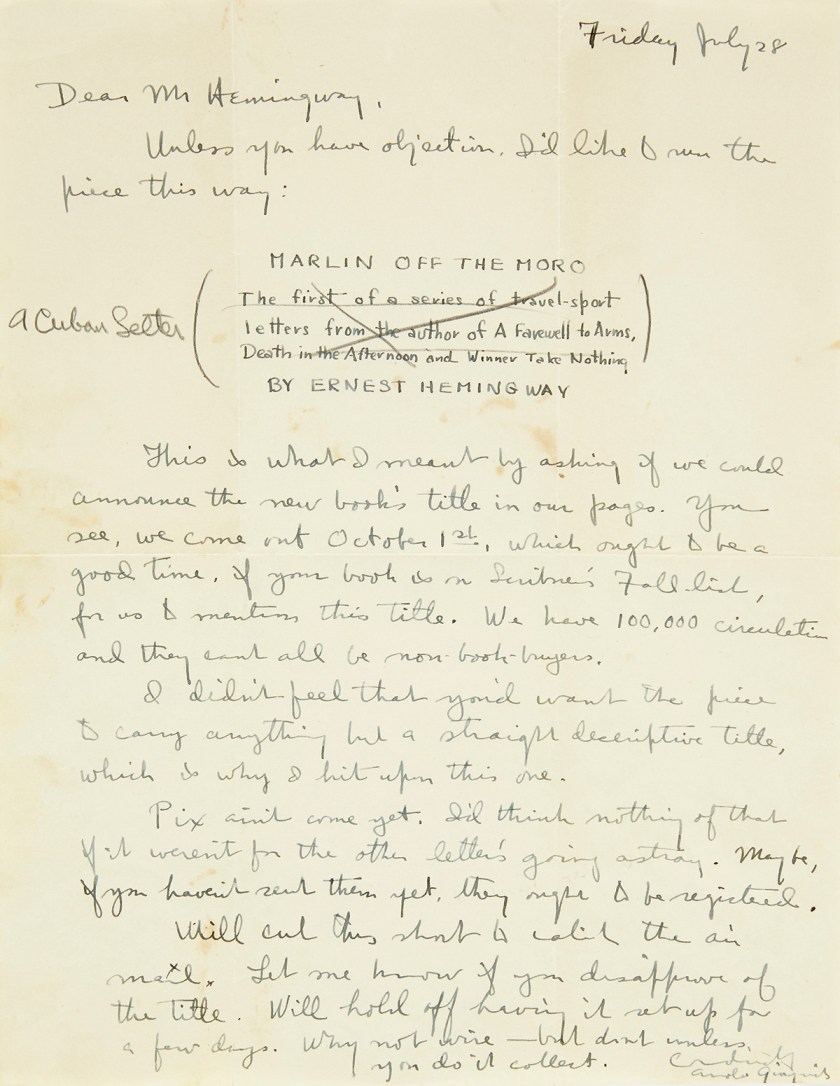 Friday July 28
Dear Mr Hemingway,
Unless you have objection, I'd like to run the
piece this way:
MARLIN OFF THE MORO
A Cuban Letter
The first of a series of travel-sport
letters from the author of A Farewell to Arms,
Death in the Afternoon and Winner Take Nothing
BY ERNEST HEMINGWAY
This is what I meant by asking if we could
announce the new book's title in our pages. You
see, we come out October 1st, which ought to be a
good time, if your book is on Scribner's Fall list,
for us to mention this title. We have 100,000 circulation
and they cant all be non-book-buyers.
I didn't feel that you'd want the piece
to carry anything but a straight descriptive title,
which is why I hit upon this one.
Pix ain't come yet. I'd think nothing of that
if it weren't for the other letter's going astray. Maybe,
if you haven't sent them yet, they ought to be registered.
Will cut this short to catch the air
mail. Let me know if you disapprove of
the title. Will hold off having it set up for
a few days. Why not wire – but dont unless
you do it collect.
Cordially
Arnold Gingrich